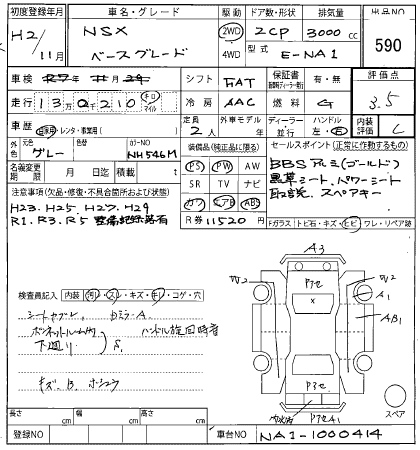 初度登録年月
車名・グレード
駆動
ドア数・形状
排気量
出品NO
H2/11月
NSX
ベースグレード
2WD
4WD
2CP
3000cc
型式
E-NA1
590
車検
年 月
シフト
FAT
保証書
有・無
評価点
3.5
走行
13万0千210
キロ
マイル
冷房
AAC
燃料
G
車歴
自家用・レンタ・事業用( )
定員
2人
外車モデル年
ディーラー並行
ハンドル
左・右
内装評価
C
外色
元色
グレー
色替
カラーNO
NH546M
装備品(純正品に限る)
セールスポイント(正常に作動するもの)
PS PW AW
SR TV ナビ
カワ エアB ABS
BBSアルミ(ゴールド)
黒革シート、パワーシート
取説、スペアキー
名義変更期限
月 日迄
積載
t
注意事項(欠品・修復・不具合箇所及び状態)
H23. H25. H27. H29
R1. R3. R5 整備記録簿有
R券 11520円
Fガラス トビ石・キズ・ヒビ ワレ・リペア跡
検査員記入
内装 汚レ・スレ・キズ・キレ・コゲ・穴
シートヤブレ.
ハンドル
下廻り
S,
キズ.B.
A3
W2
W2
A1
AB1
P3セ
X
P3セ
A1
スペア
長さ cm
幅 cm
高さ cm
登録NO
車台NO
NA1-1000414